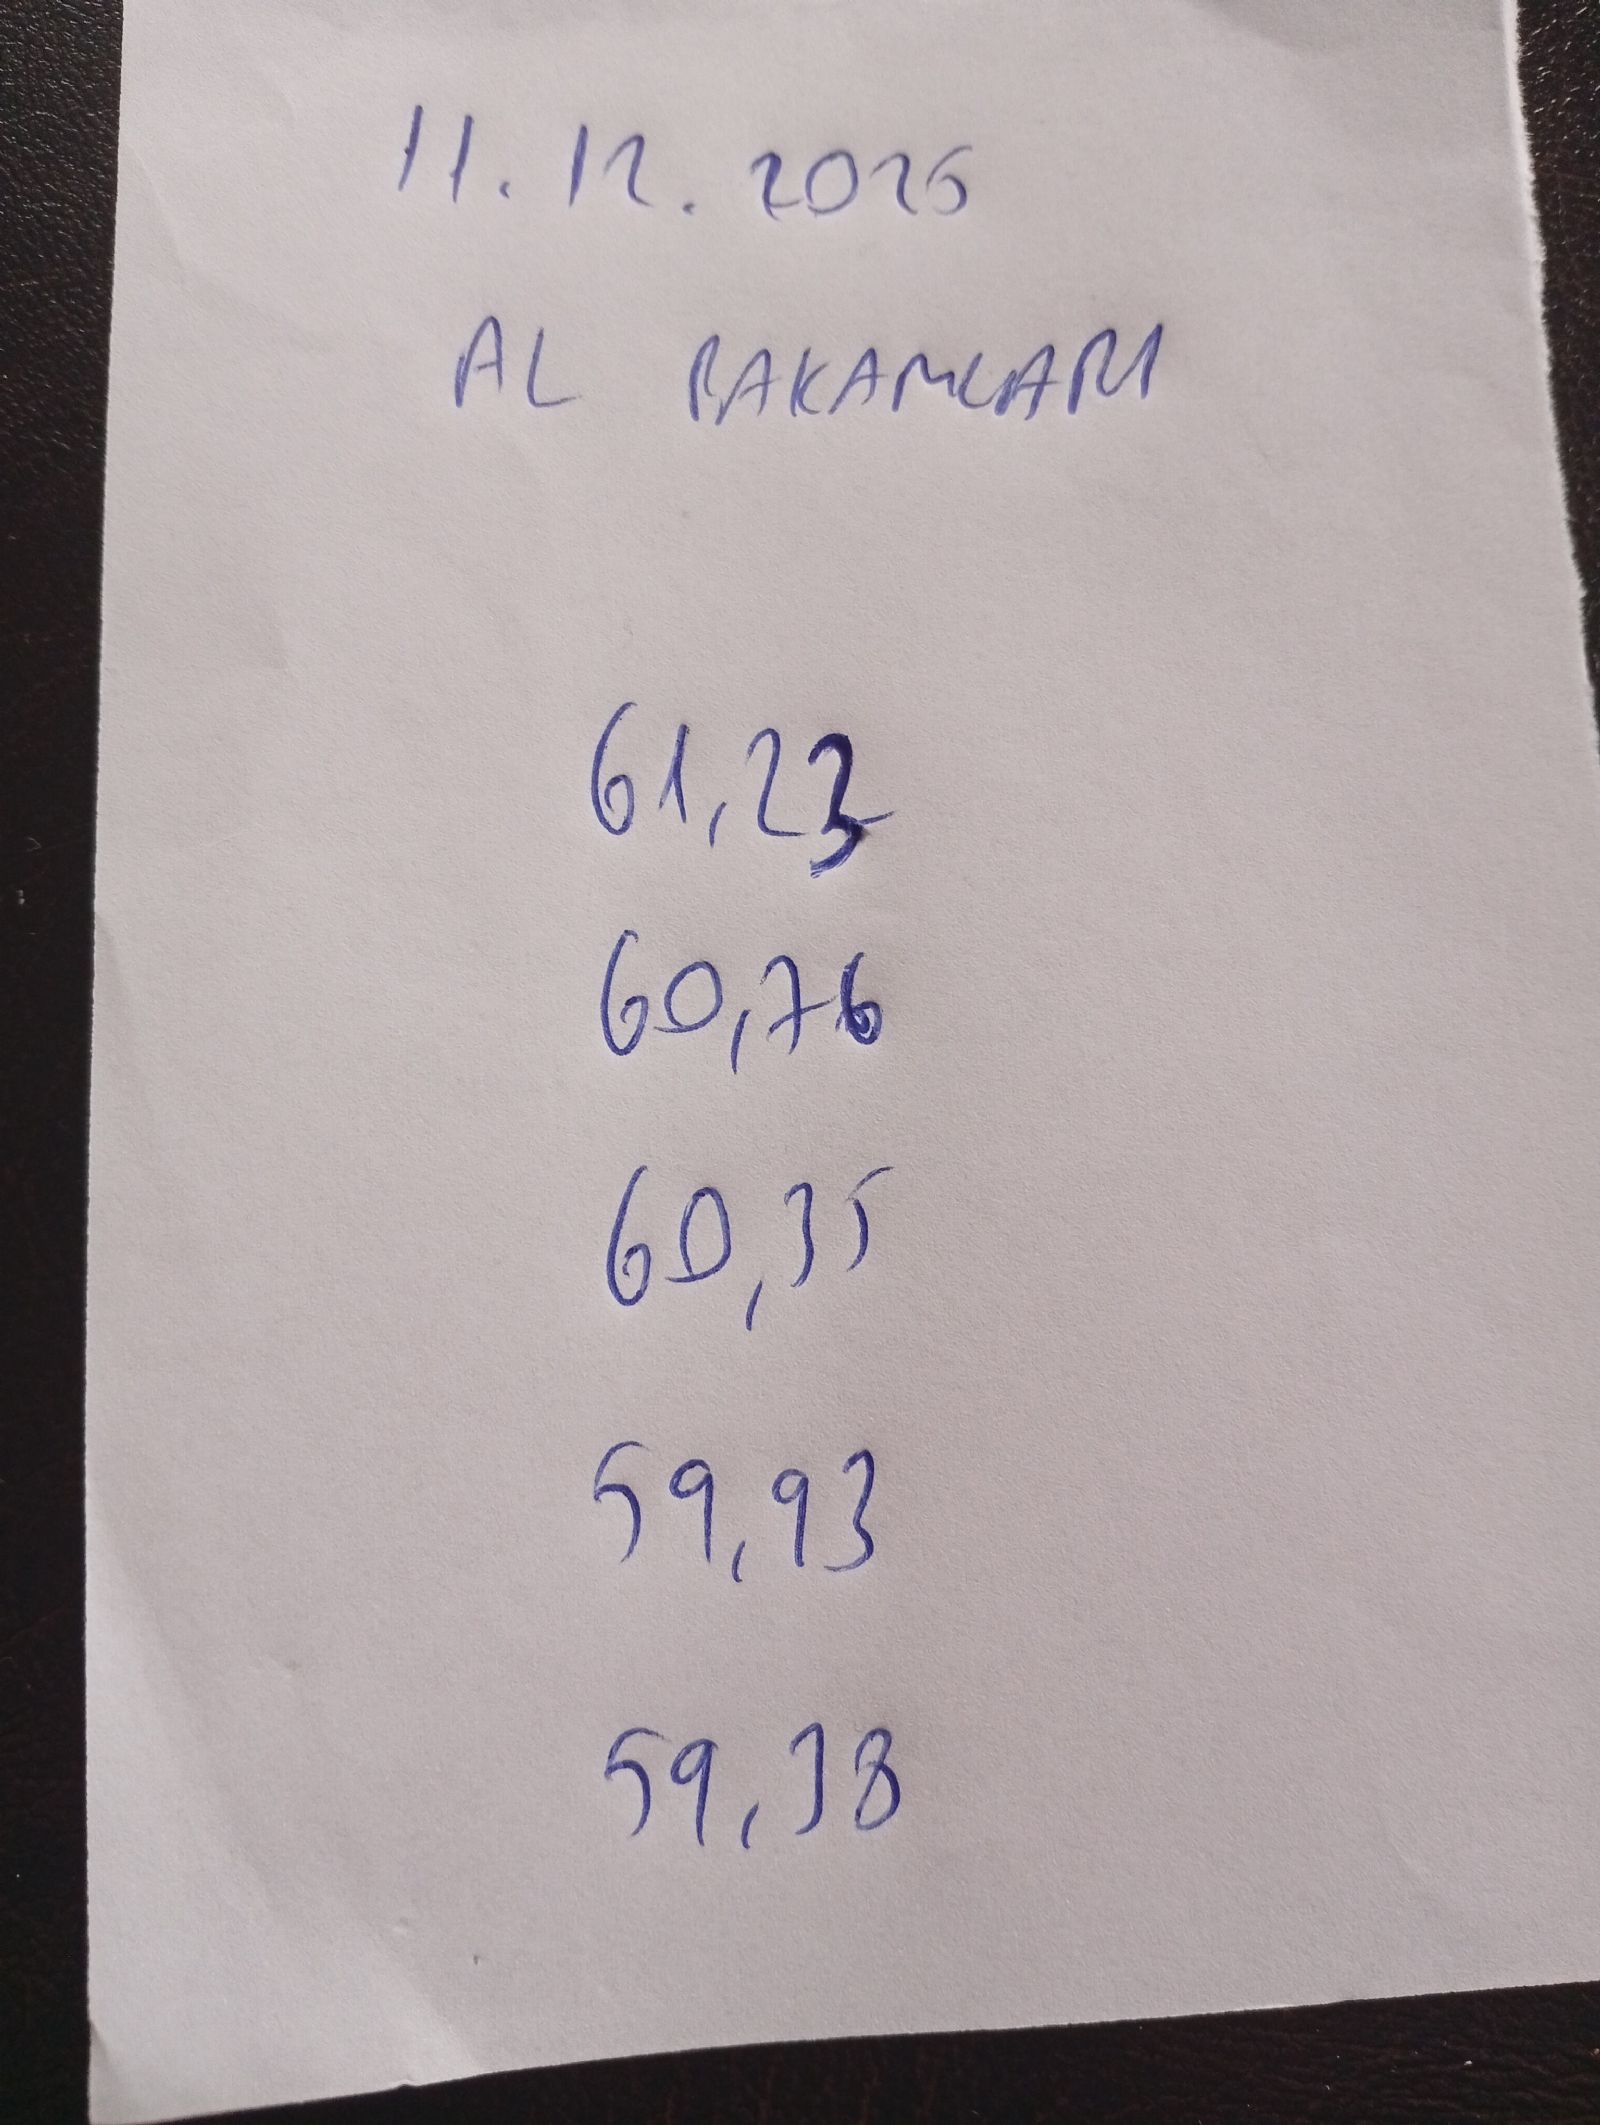 11.12.2025
AL RAKAMLARI
61,23
60,76
60,35
59,93
59,38